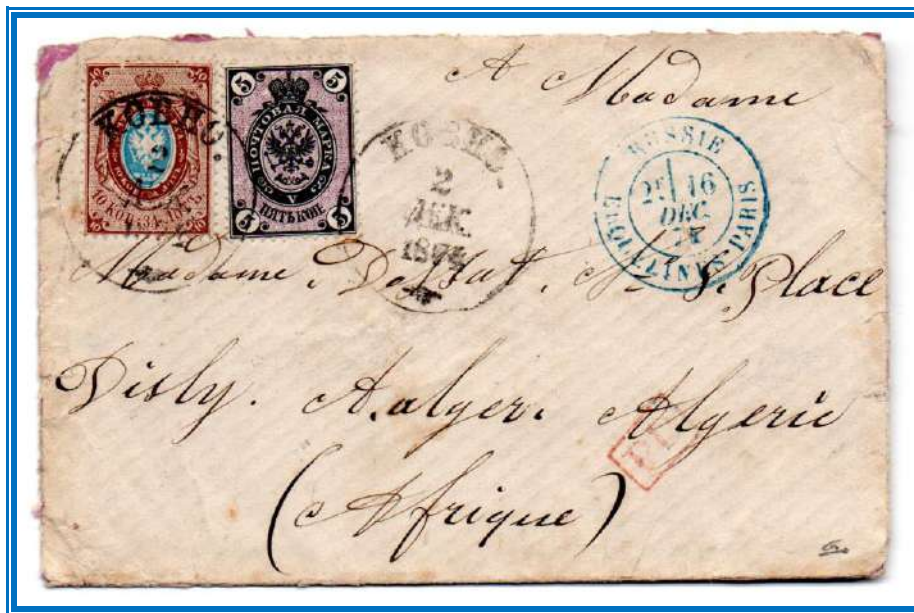 10 10
КОВНО.
2
10 КОП. ЗА ЛОТЪ
5 5
ПОЧТОВАЯ МАРКА
V
ПЯТЬ КОП
5 5
КОВНО.
2
ДЕК.
187
RUSSIE
2Е 16
DEC.
ERQUELINES-PARIS
A Madame
Madame Place
Disly. A. alger. Algerie
(Afrique)